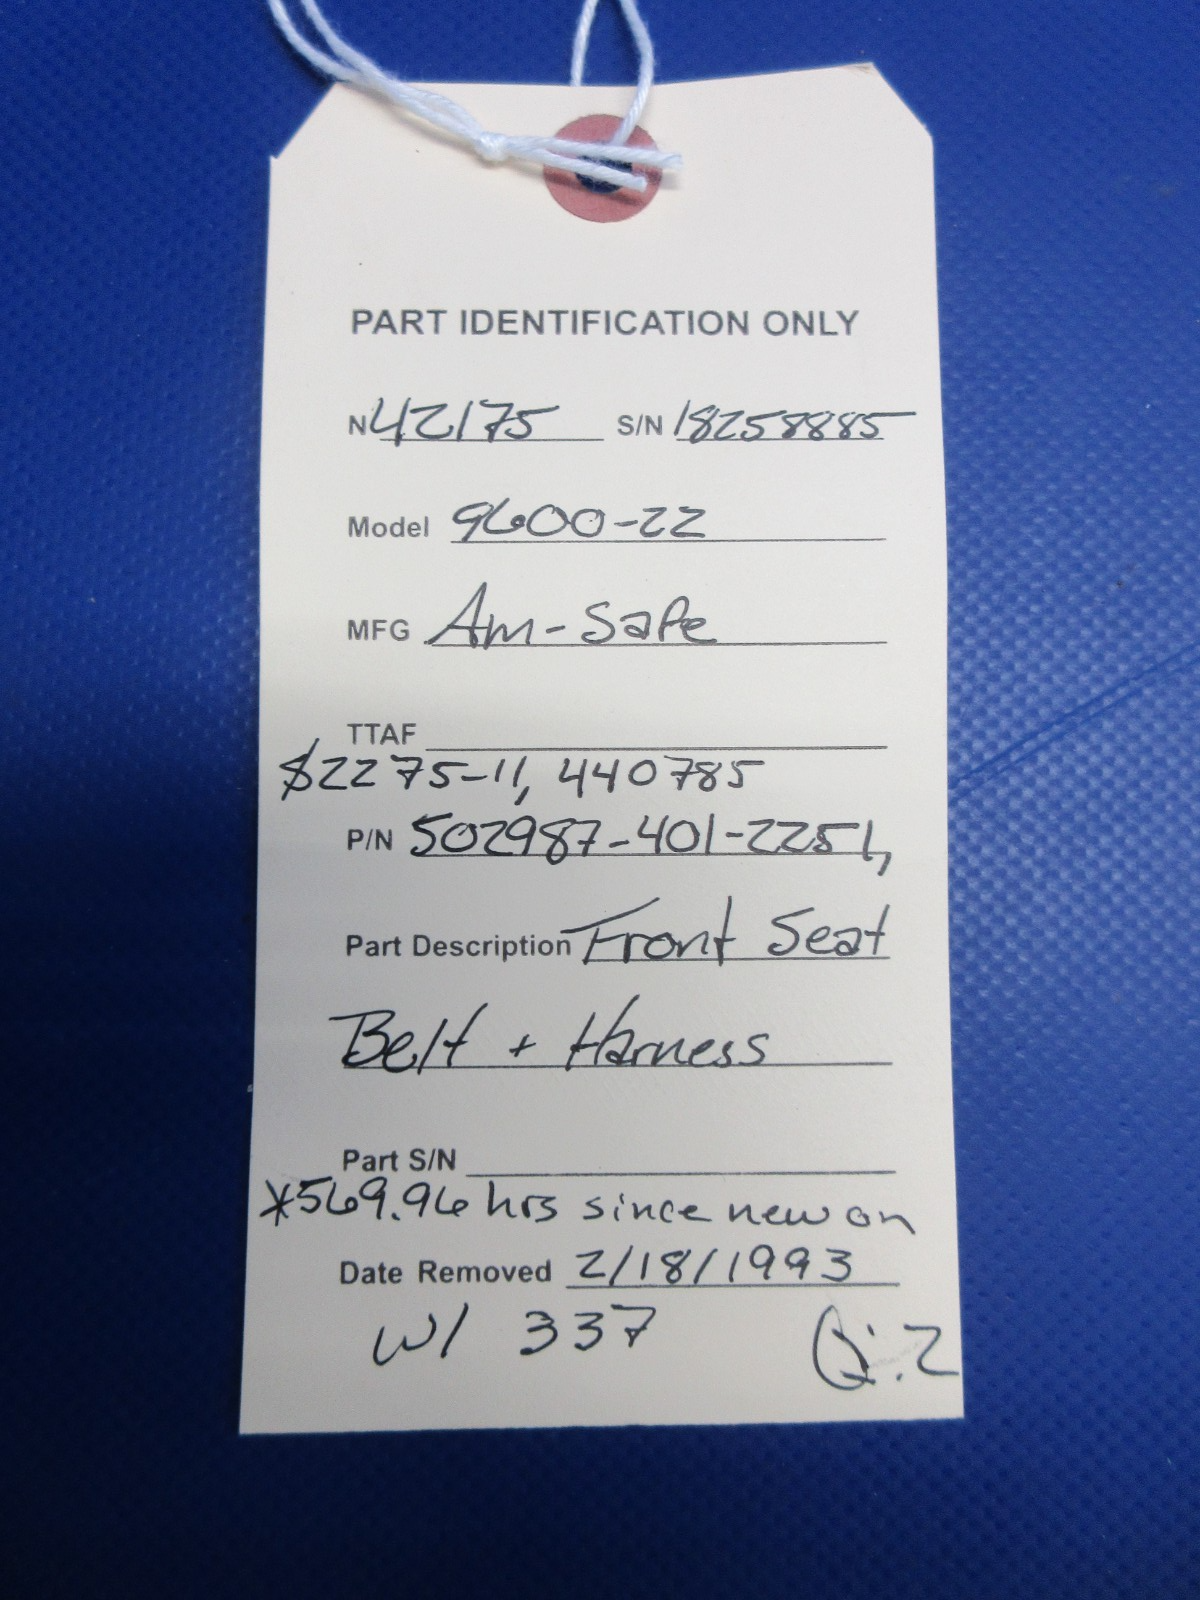 PART IDENTIFICATION ONLY
N 42175 S/N 18258885
Model 9600-22
MFG Am-Safe
TTAF
$2275-11, 440785
P/N 502987-401-2251,
Part Description Front Seat
Belt + Harness
Part S/N
*569.96 hrs since new on
Date Removed 2/18/1993
W/ 337 Q.2